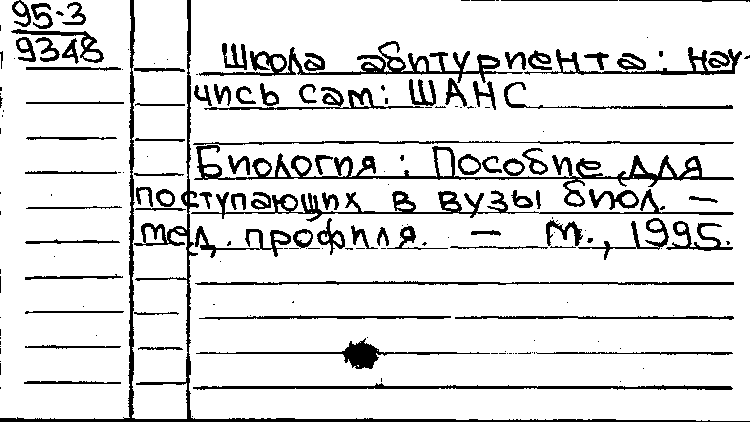 95-3
9348
Школа абитуриента: нау-
чись сам: ШАНС
Биология: Пособие для
поступающих в вузы биол. -
мед. профиля. - М., 1995.